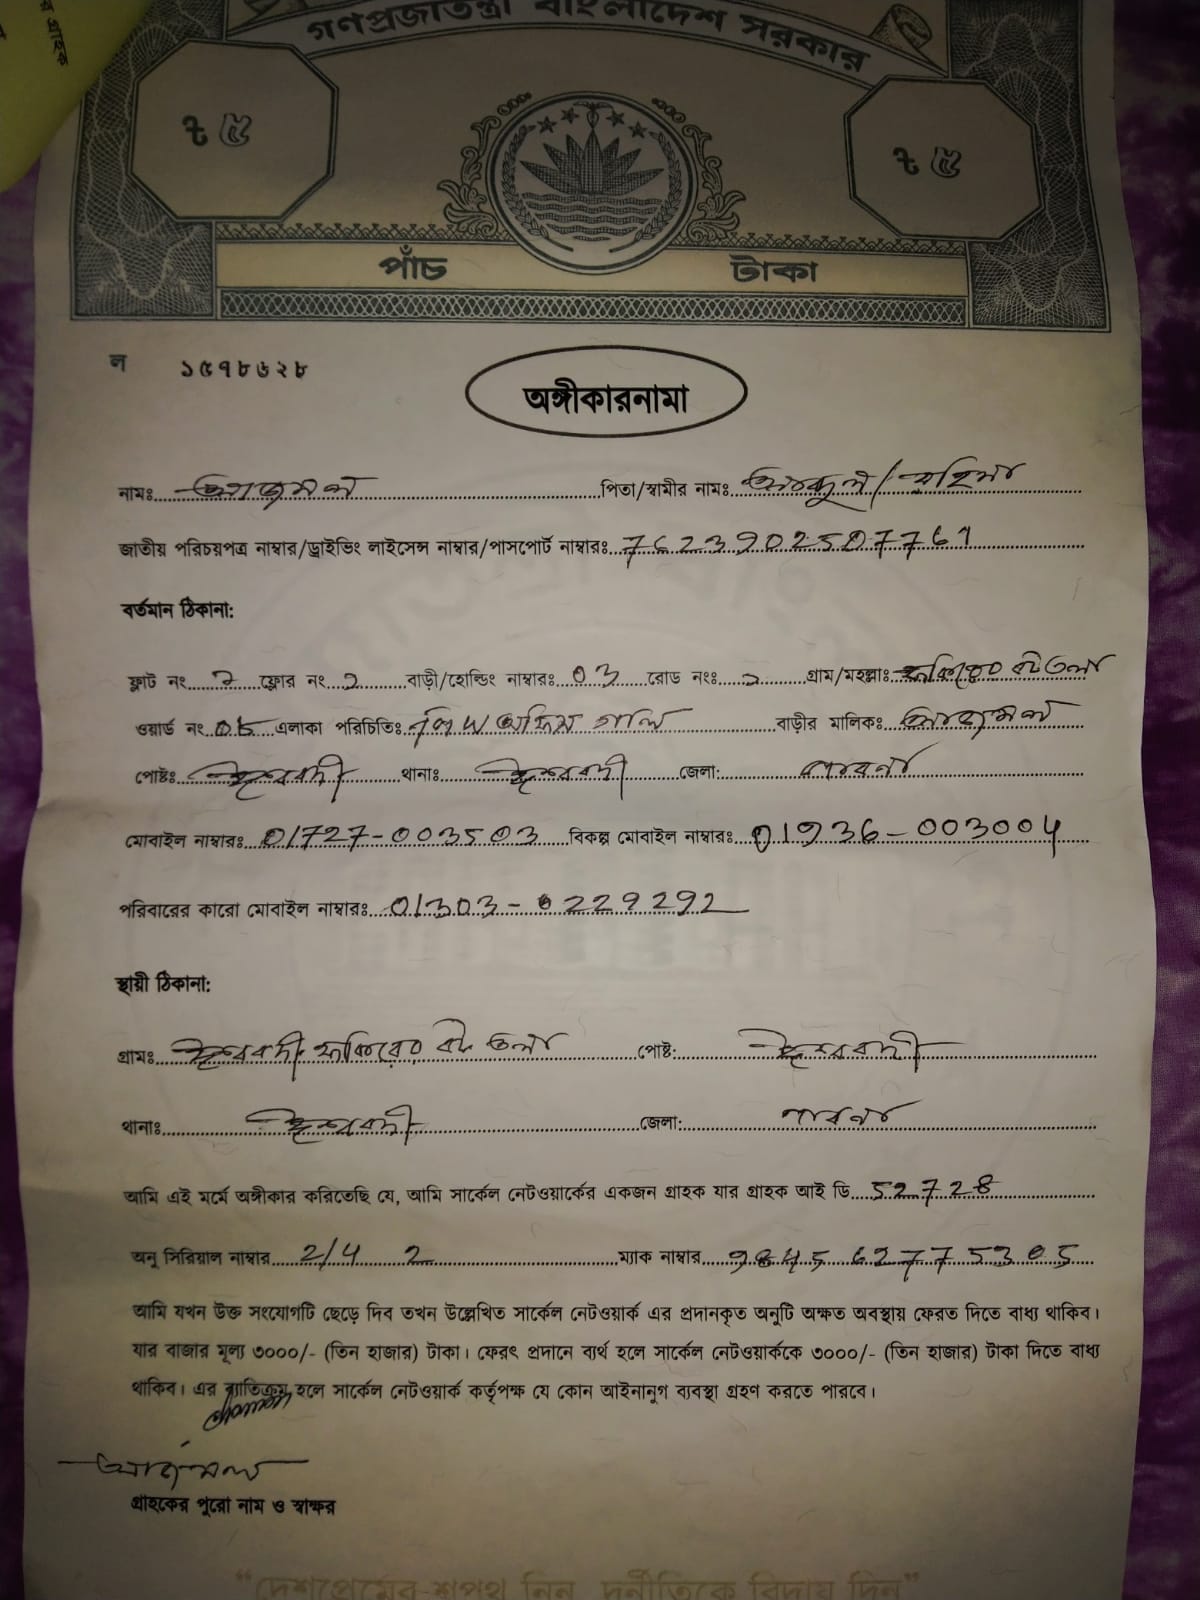 গণপ্রজাতন্ত্রী বাংলাদেশ সরকার
৳ ৫ ৳ ৫
পাঁচ টাকা
ল ১৫৭৮৬২৮
অঙ্গীকারনামা
নামঃ পিতা/স্বামীর নামঃ
জাতীয় পরিচয়পত্র নাম্বার/ড্রাইভিং লাইসেন্স নাম্বার/পাসপোর্ট নাম্বারঃ 7623902507761
বর্তমান ঠিকানা:
ফ্লাট নং ফ্লোর নং বাড়ী/হোল্ডিং নাম্বারঃ 03 রোড নংঃ গ্রাম/মহল্লাঃ ফকিরের বটতলা
ওয়ার্ড নং এলাকা পরিচিতিঃ বাড়ীর মালিকঃ
পোষ্টঃ ঈশ্বরদী থানাঃ ঈশ্বরদী জেলা: পাবনা
মোবাইল নাম্বারঃ 01727-003503 বিকল্প মোবাইল নাম্বারঃ 01936-003004
পরিবারের কারো মোবাইল নাম্বারঃ 01303-
স্থায়ী ঠিকানা:
গ্রামঃ ঈশ্বরদী ফকিরের বটতলা পোষ্ট: ঈশ্বরদী
থানাঃ ঈশ্বরদী জেলা: পাবনা
আমি এই মর্মে অঙ্গীকার করিতেছি যে, আমি সার্কেল নেটওয়ার্কের একজন গ্রাহক যার গ্রাহক আই ডি 52728
অনু সিরিয়াল নাম্বার 2/4 2 ম্যাক নাম্বার
আমি যখন উক্ত সংযোগটি ছেড়ে দিব তখন উল্লেখিত সার্কেল নেটওয়ার্ক এর প্রদানকৃত অনুটি অক্ষত অবস্থায় ফেরত দিতে বাধ্য থাকিব।
যার বাজার মূল্য ৩০০০/- (তিন হাজার) টাকা। ফেরৎ প্রদানে ব্যর্থ হলে সার্কেল নেটওয়ার্ককে ৩০০০/- (তিন হাজার) টাকা দিতে বাধ্য
থাকিব। এর ব্যতিক্রম হলে সার্কেল নেটওয়ার্ক কর্তৃপক্ষ যে কোন আইনানুগ ব্যবস্থা গ্রহণ করতে পারবে।
গ্রাহকের পুরো নাম ও স্বাক্ষর
“দেশপ্রেমের শপথ নিন, দুর্নীতিকে বিদায় দিন”